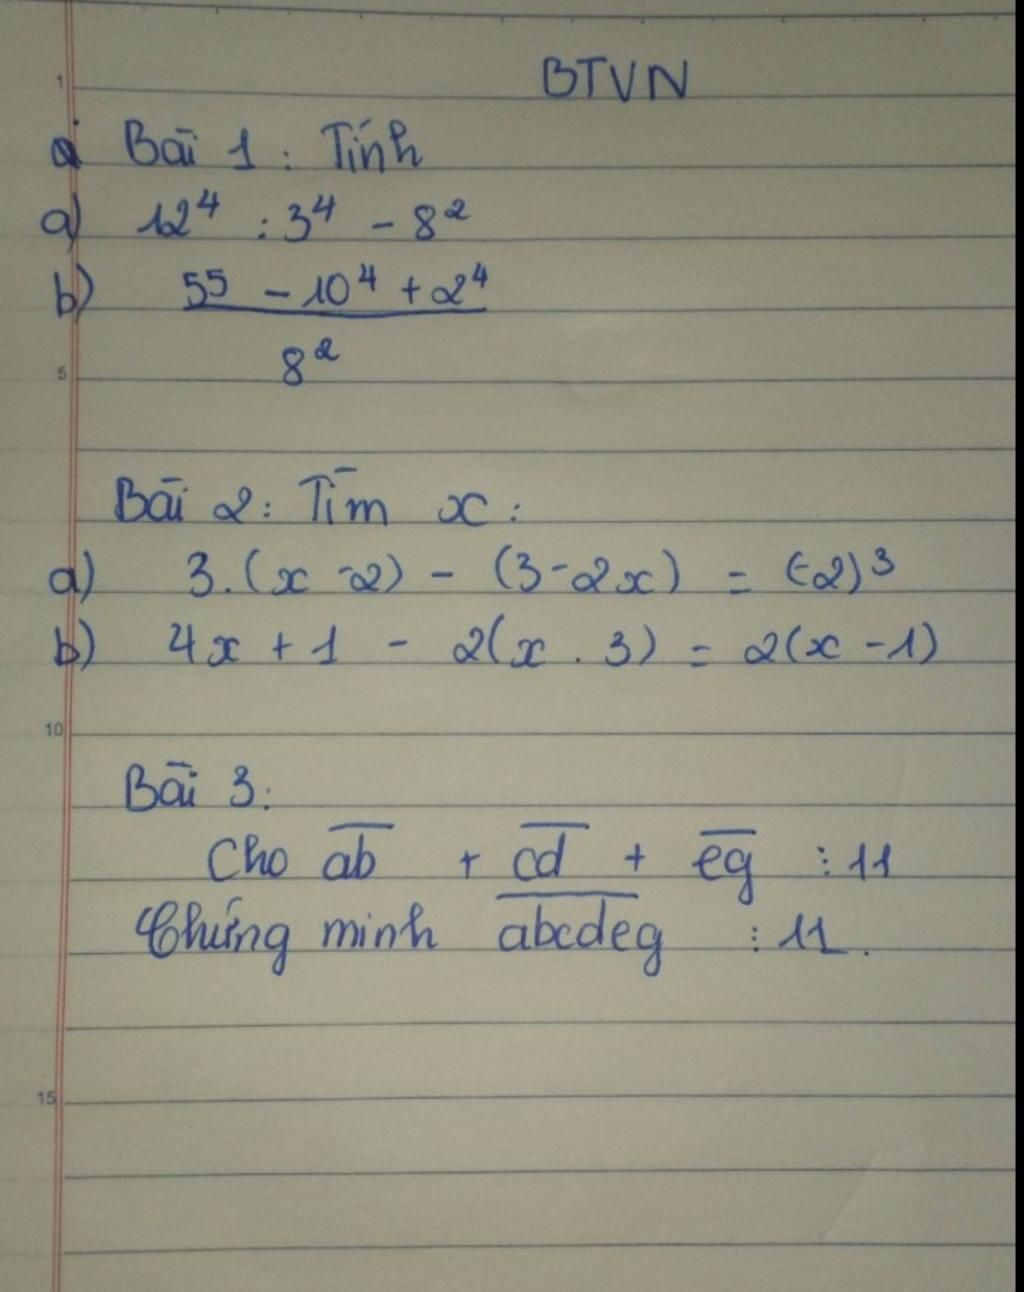 BTVN
Bài 1 : Tính
a) 12⁴ : 3⁴ - 8²
b) 5⁵ - 10⁴ + 2⁴
8²
5
Bài 2 : Tìm x :
a) 3.(x -2) - (3-2x) = (-2)³
b) 4x + 1 - 2(x . 3) = 2(x -1)
10
Bài 3:
Cho a̅b̅ + c̅d̅ + e̅g̅ ⋮ 11
Chứng minh a̅b̅c̅d̅e̅g̅ ⋮ 11.
15